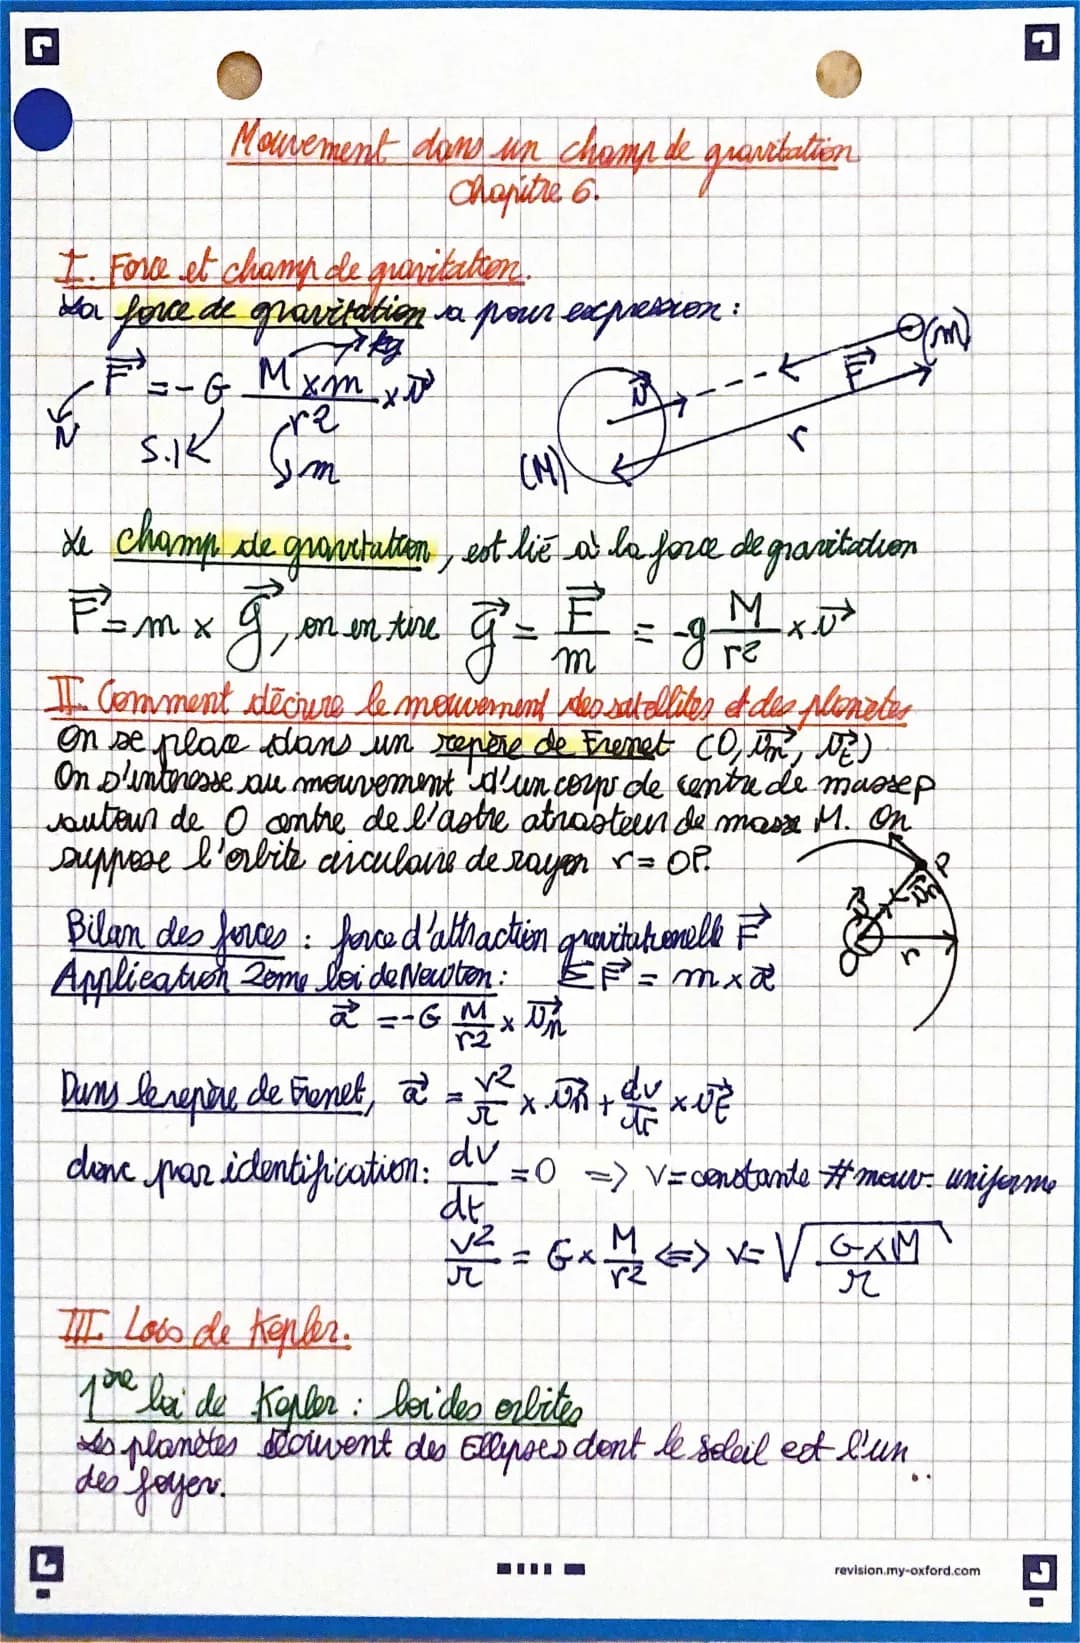 Mouvement dans un champ de gravitation
Chapitre 6.
I. Force et champ de gravitation.
La force de gravitation a pour expression :
F⃗ = - G (M x m)/r² x u⃗
kg
N
S.I
m
u⃗
F⃗
(m)
r
(M)
Le champ de gravitation, est lié à la force de gravitation
F⃗ = m x g⃗, on en tire g⃗ = F⃗/m = -g M/r² x u⃗
II. Comment décrire le mouvement des satellites et des planètes
On se place dans un repère de Frenet (O, un⃗, ut⃗)
On s'intéresse au mouvement d'un corps de centre de masse P
autour de O centre de l'astre attracteur de masse M. On
suppose l'orbite circulaire de rayon r = OP.
P
un⃗
O
r
Bilan des forces : force d'attraction gravitationelle F⃗
Application 2ème loi de Newton : ΣF⃗ = m x a⃗
a⃗ = - G M/r² x un⃗
Dans le repère de Frenet, a⃗ = v²/r x un⃗ + dv/dt x ut⃗
donc par identification : dv/dt = 0 => v = constante # mouv. uniforme
v²/r = G x M/r² <=> v = √(G x M/r)
III. Lois de Kepler.
1ère loi de Kepler : loi des orbites
Les planètes décrivent des Ellipses dont le soleil est l'un
des foyer.
..
revision.my-oxford.com